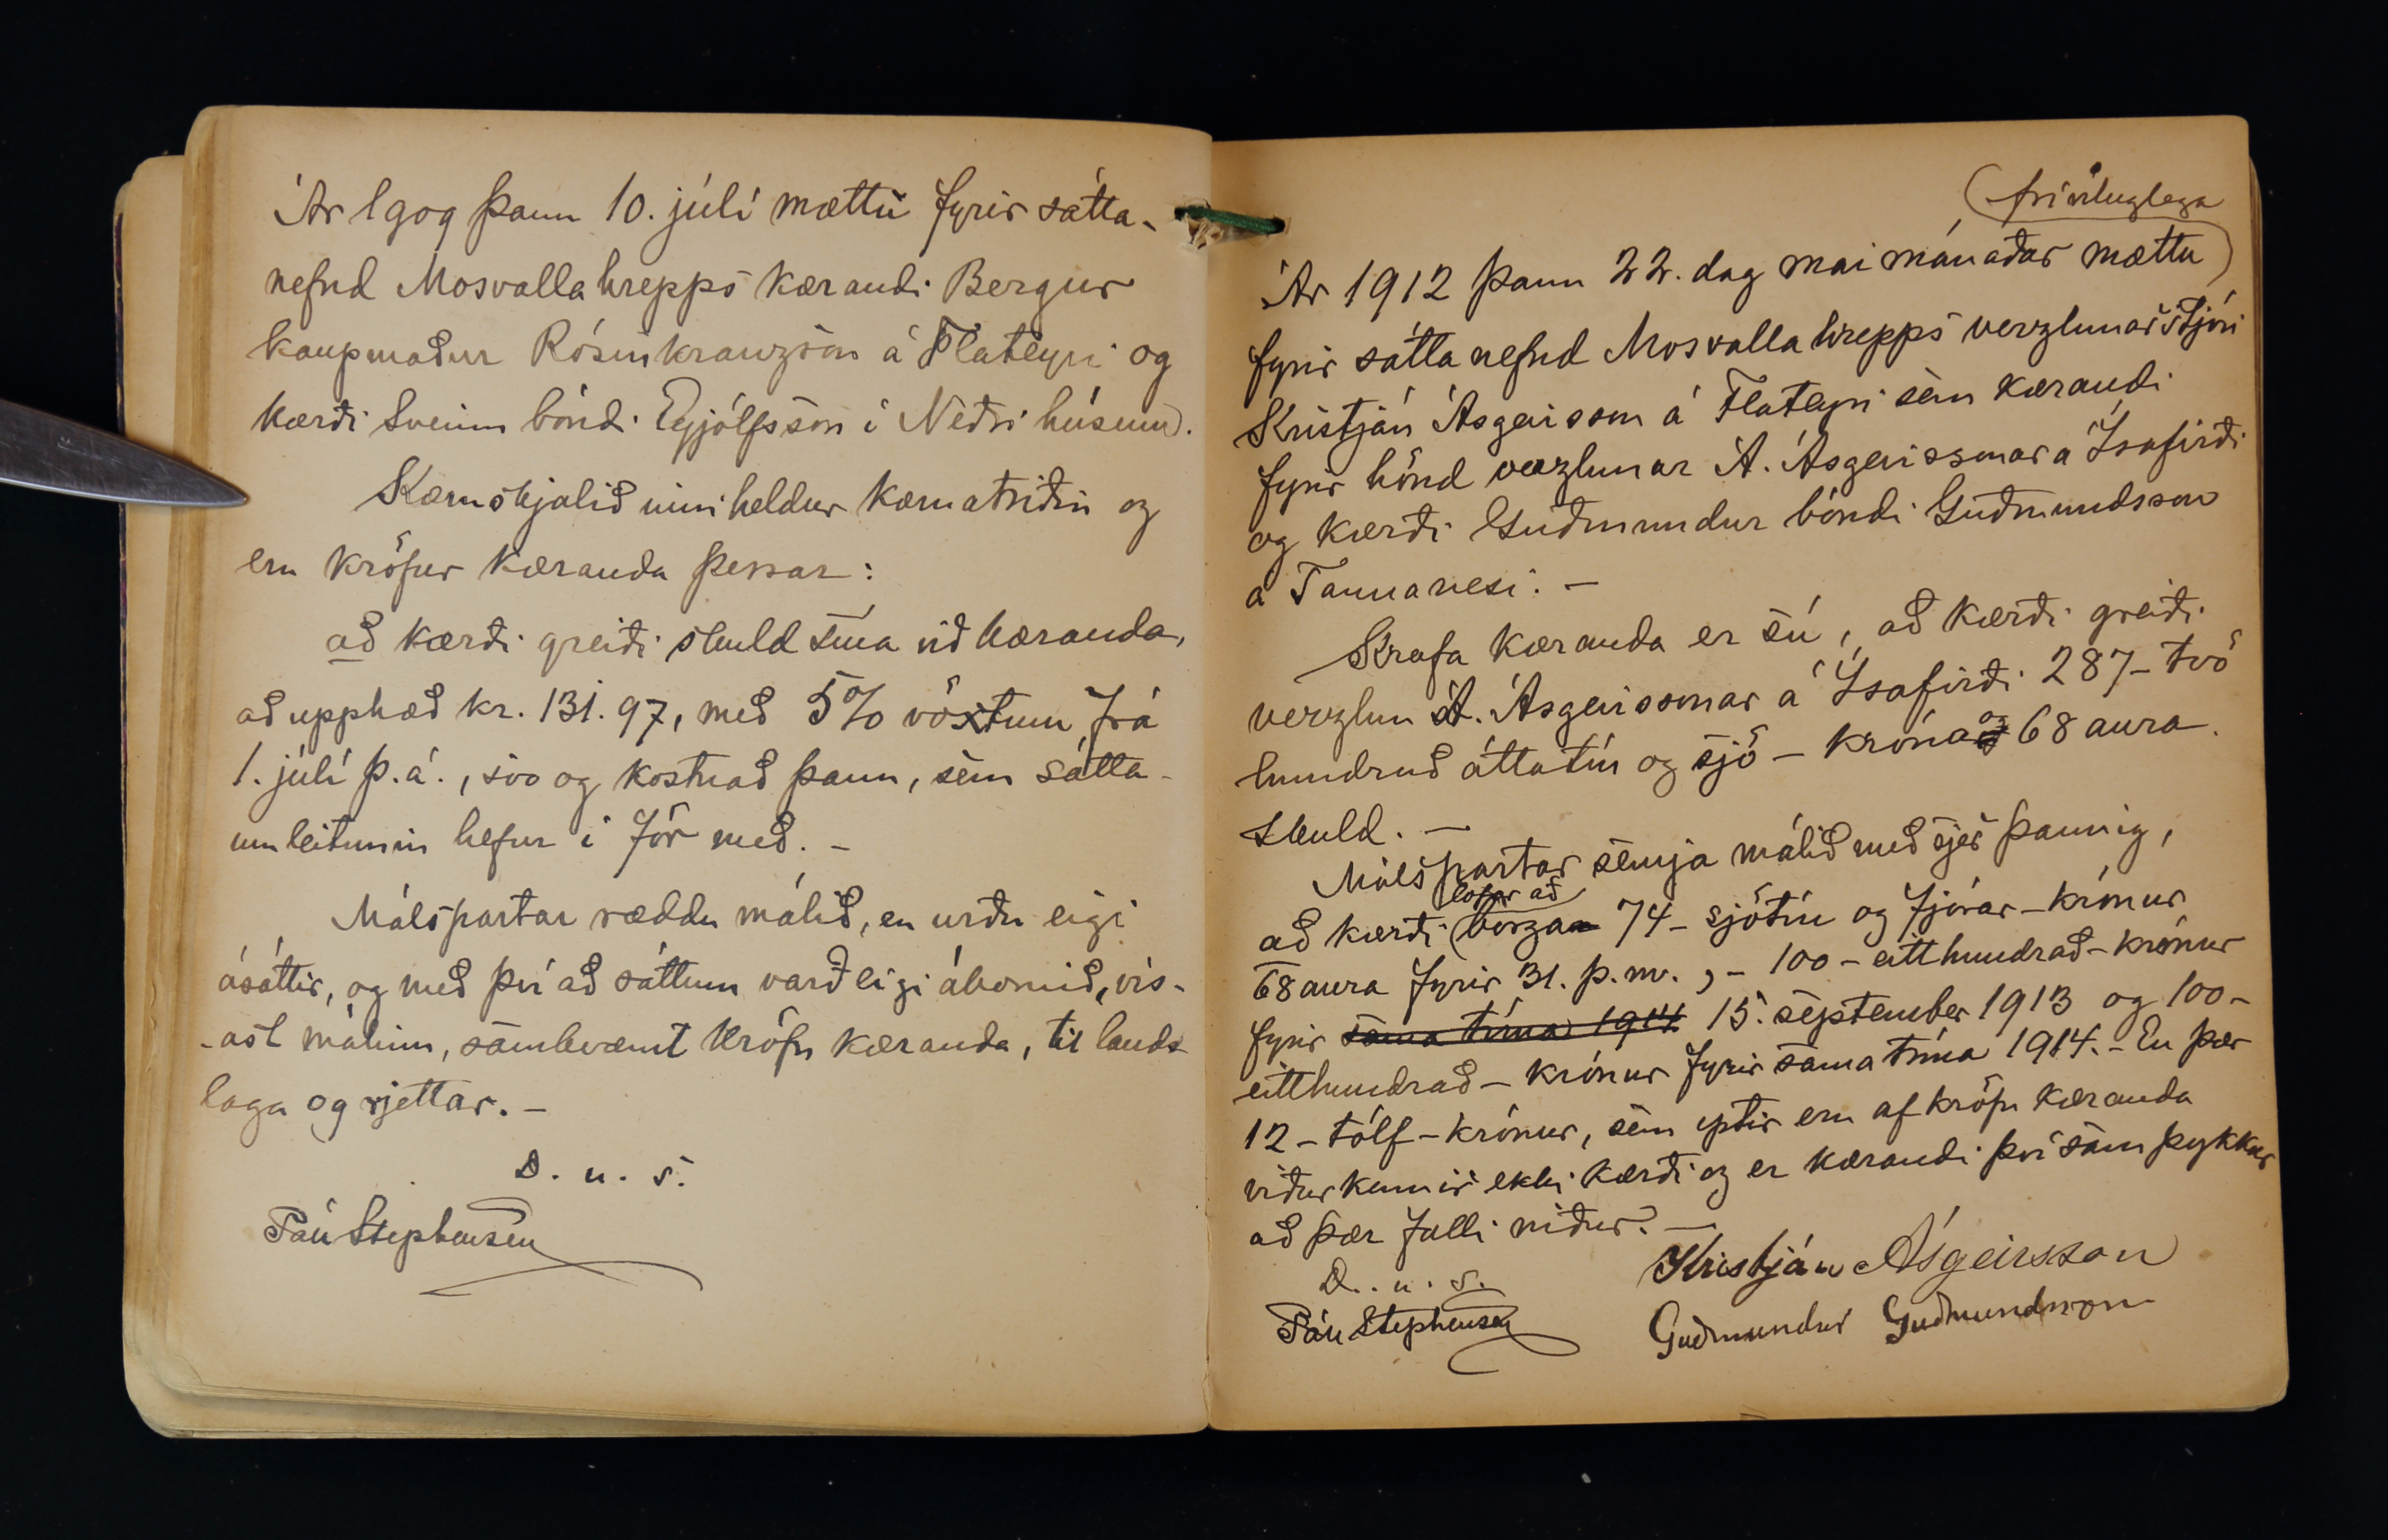 Ár 1909 þann 10. júlí mættu fyrir sátta-
nefnd Mosvallahrepps kærandi Bergur
kaupmaður Rósinkranzson á Flateyri og
kærði Sveinn bóndi Eyjólfsson í Neðrihúsum.
Kæruskjalið inniheldur kæruatriðin og
eru kröfur kæranda þessar:
að kærði greiði skuld sína við kæranda,
að upphæð kr. 131.97, með 5% vöxtum frá
1. júlí þ. á., svo og kostnað þann, sem sátta-
umleitunin hefur í för með. -
Málspartar ræddu málið, en urðu eigi
ásáttir, og með því að sáttum varð eigi ákomið, vís-
-ast málinu, samkvæmt kröfu kæranda, til lands-
laga og rjettar. -
D. u. s.
Páll Stephensen
(fríviluglega
Ár 1912 þann 22. dag mai mánaðar mættu
fyrir sáttanefnd Mosvallahrepps verzlunarstjóri
Kristján Ásgeirsson á Flateyri sem kærandi
fyrir hönd verzlunar Á. Ásgeirssonar á Ísafirði
og kærði Guðmundur bóndi Guðmundsson
á Tannanesi. -
Krafa kæranda er sú, að kærði greiði
verzlun Á. Ásgeirssonar á Ísafirði 287 - tvö
hundruð áttatíu og sjö - króna og 68 aura
skuld. -
Málspartar semja málið með sjer þannig,
lofar að
að kærði borga 74 - sjötíu og fjórar - krónur
68 aura fyrir 31. þ. m., - 100 - eitthundrað - krónur
fyrir sama tíma 1914 15. september 1913 og 100 -
eitthundrað - krónur fyrir sama tíma 1914. - En þær
12 - tólf - krónur, sem eptir eru af kröfu kæranda
viðurkennir ekki kærði og er kærandi því samþykkur
að þær falli niður. -
D. u. s.
Kristján Ásgeirsson
Páll Stephensen
Guðmundur Guðmundsson